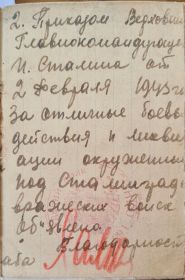 2. Приказом Верховн
Главнокомандующе
И. Сталина от
2 Февраля 1943 го
За отличные боевы
действия и ликви
ации окруженны
под Сталинград
вражеских войск
об'явлена
Благодарност